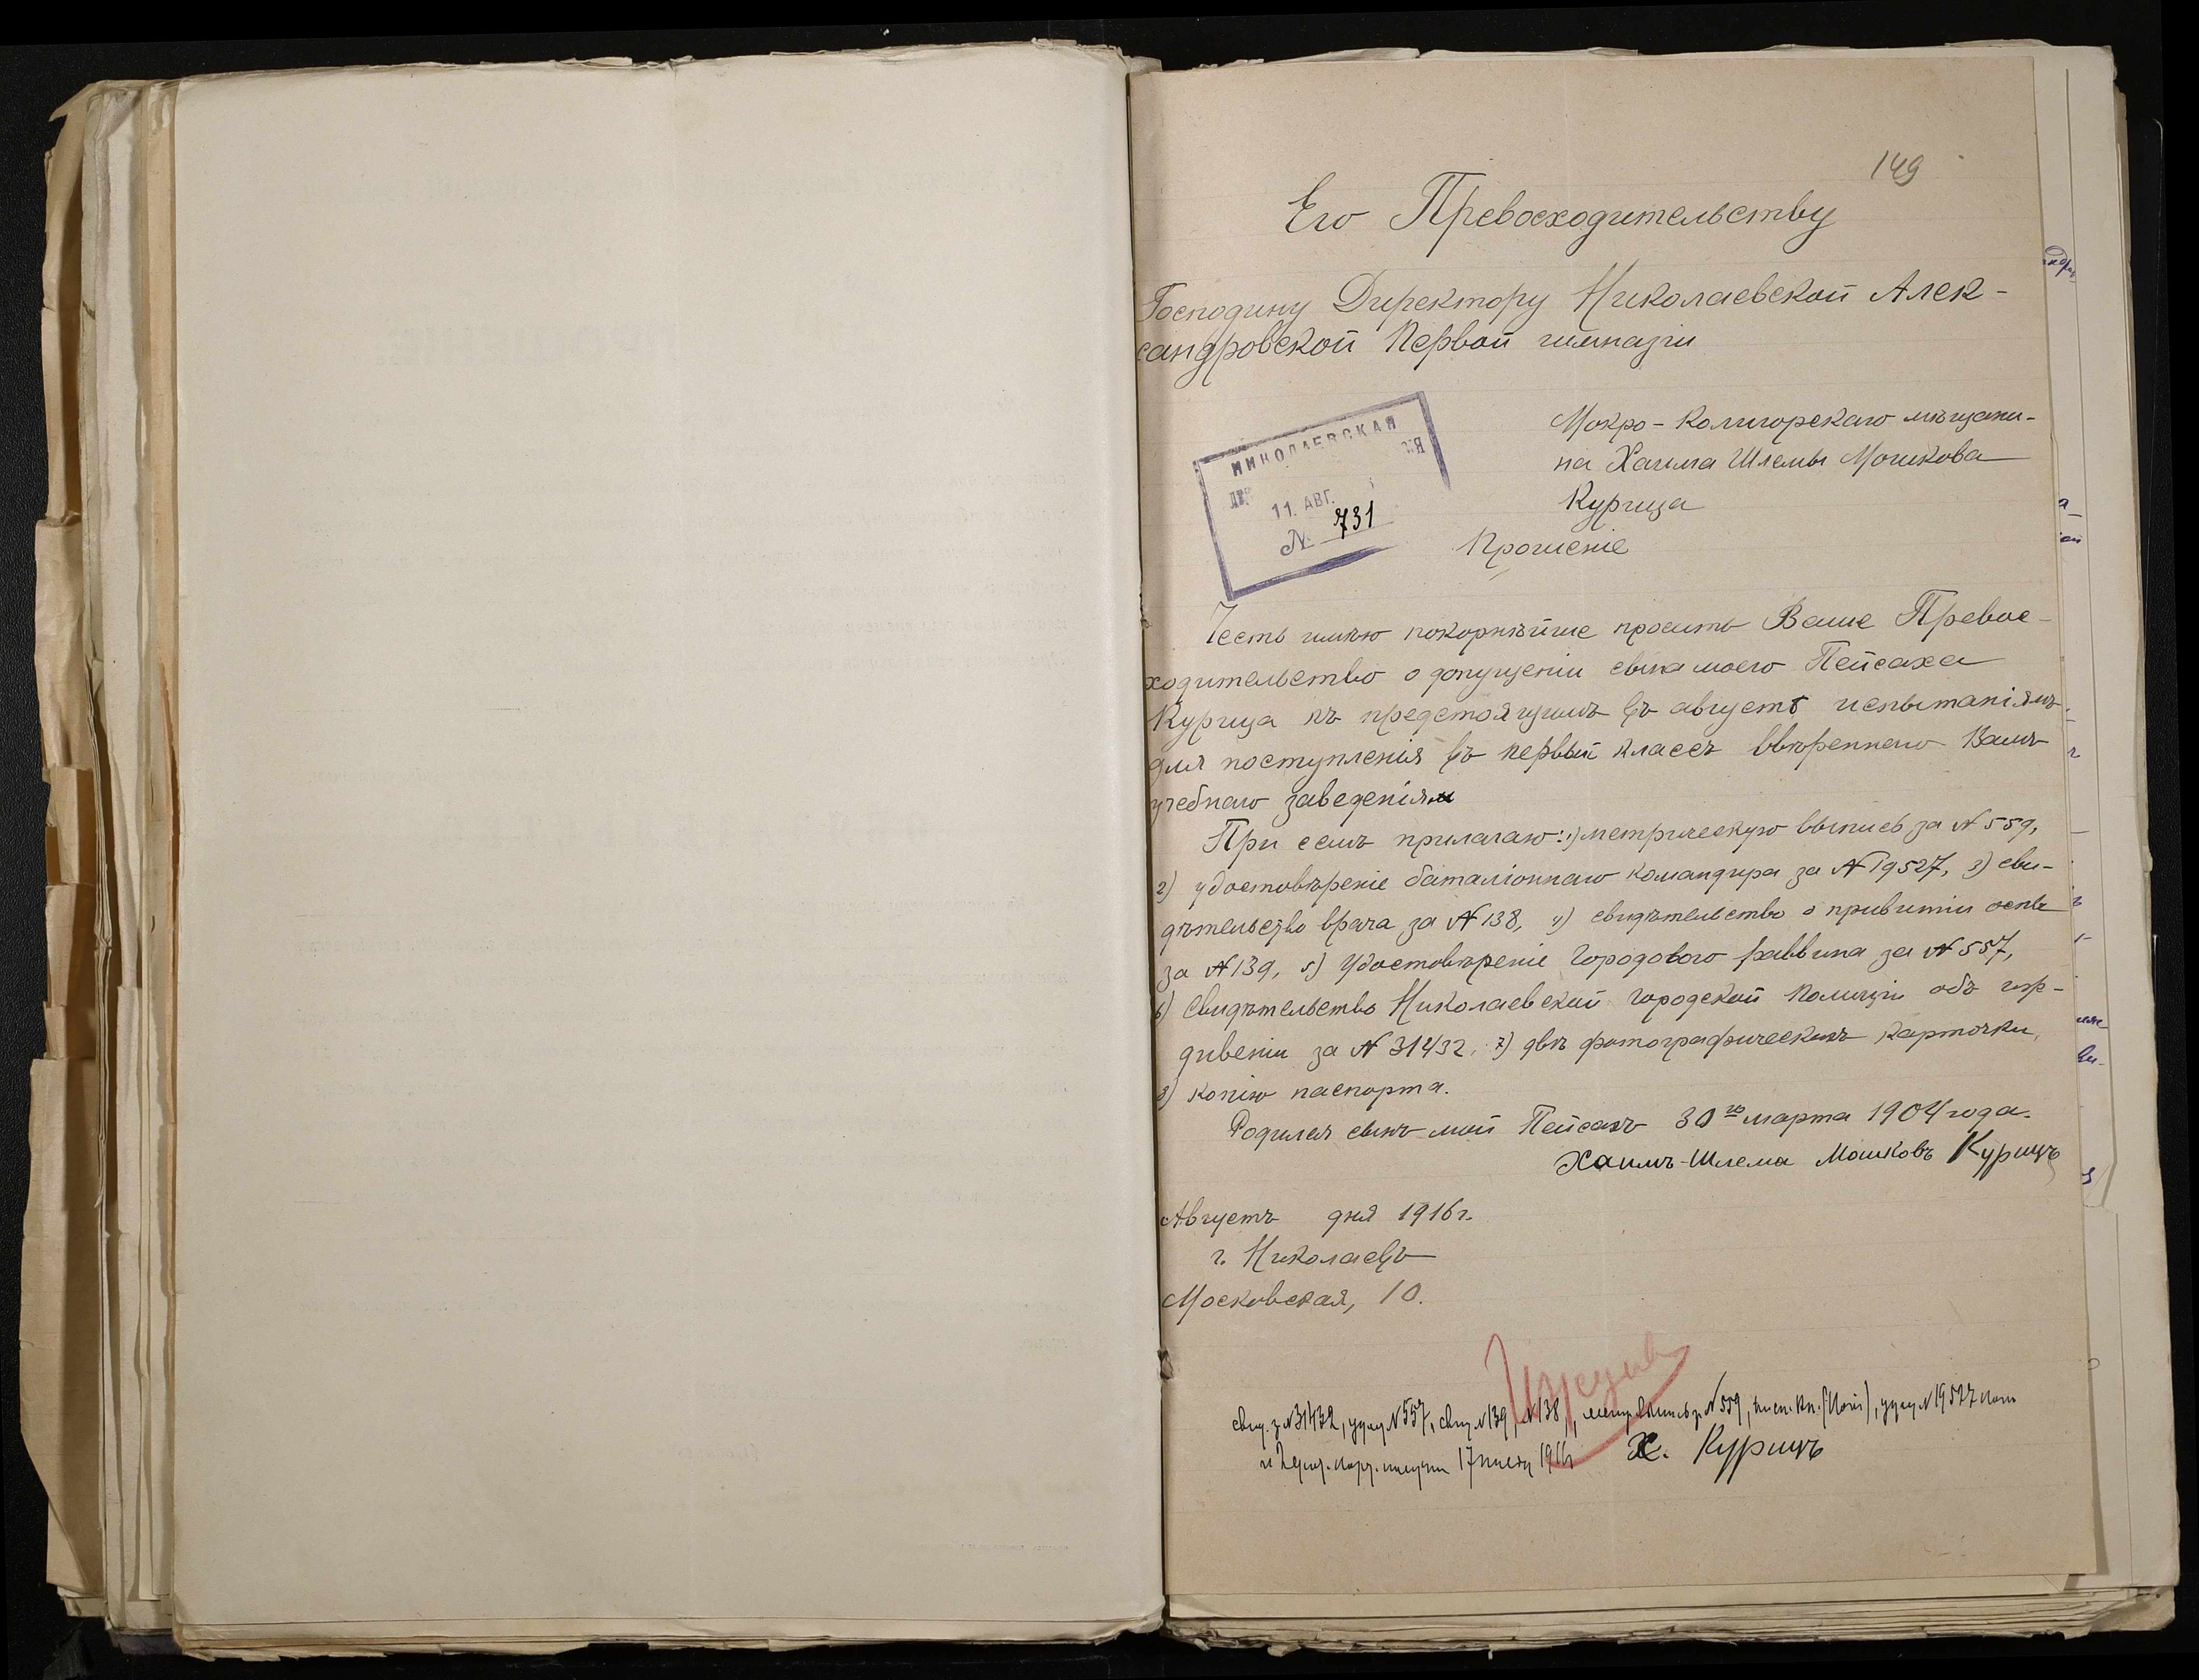 149
Его Превосходительству
Господину Директору Николаевской Алек-
сандровской Первой гимназіи
Мокро-Калигорскаго мѣщани-
на Хаима Шлемы Мошкова
Курица
НИКОЛАЕВСКАЯ
11. АВГ.
№ 731
Прошеніе
Честь имѣю покорнѣйше просить Ваше Превос-
ходительство о допущеніи сына моего Пейсаха
Курица къ предстоящимъ въ августѣ испытаніямъ
для поступленія въ первый классъ ввѣреннаго Вамъ
учебнаго заведенія
При семъ прилагаю: 1) метрическую выпись за № 559,
2) удостовѣреніе баталіоннаго командира за № 19527, 3) сви-
дѣтельство врача за № 138, 4) свидѣтельство о привитіи оспы
за № 139, 5) Удостовѣреніе Городового раввина за № 557,
6) Свидѣтельство Николаевской Городской Полиціи объ иж-
дивеніи за № 31432, 7) двѣ фотографическихъ карточки,
8) копію паспорта.
Родился сынъ мой Пейсахъ 30го марта 1904 года.
Хаимъ-Шлема Мошковъ Курицъ
Августъ дня 1916 г.
г. Николаевъ
Московская, 10.
свид. з. № 31432, удост. № 557, свид. № 139, № 138, метр. выпись з. № 559, № 19527
17 1916 Х. Курицъ